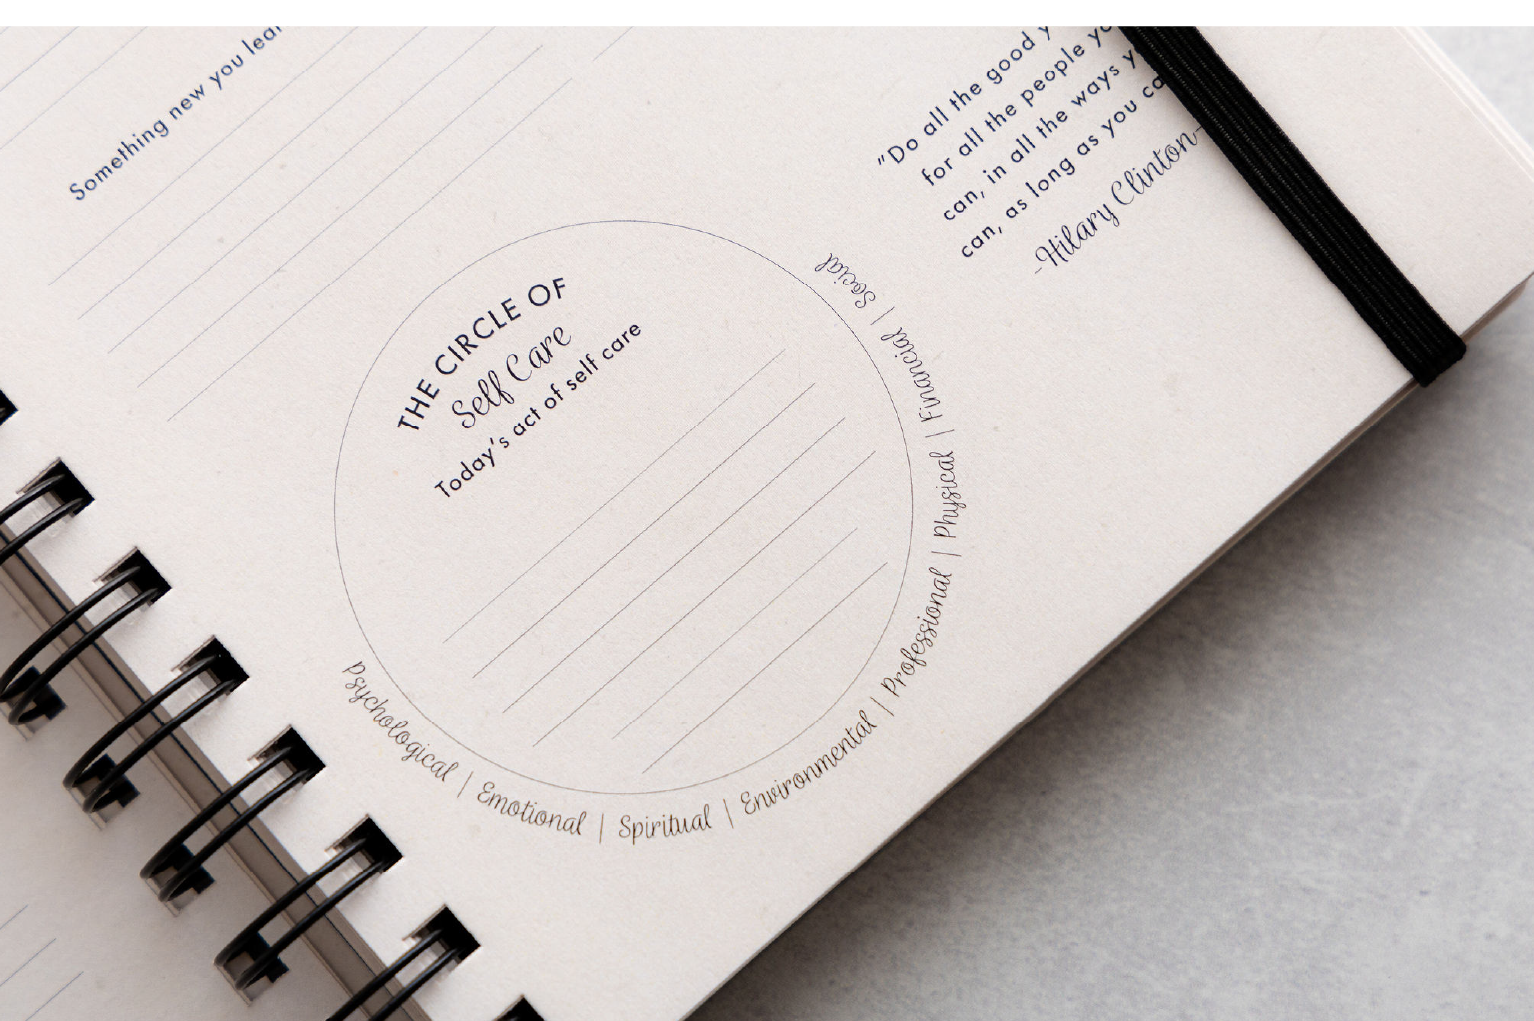 Something new you
"Do all the good
for all the people
can, in all the ways
can, as long as you
can, as long as you
-Hilary Clinton-
THE CIRCLE OF
Self Care
Today's act of self care
Psychological | Emotional | Spiritual | Environmental | Professional | Physical | Financial | Social